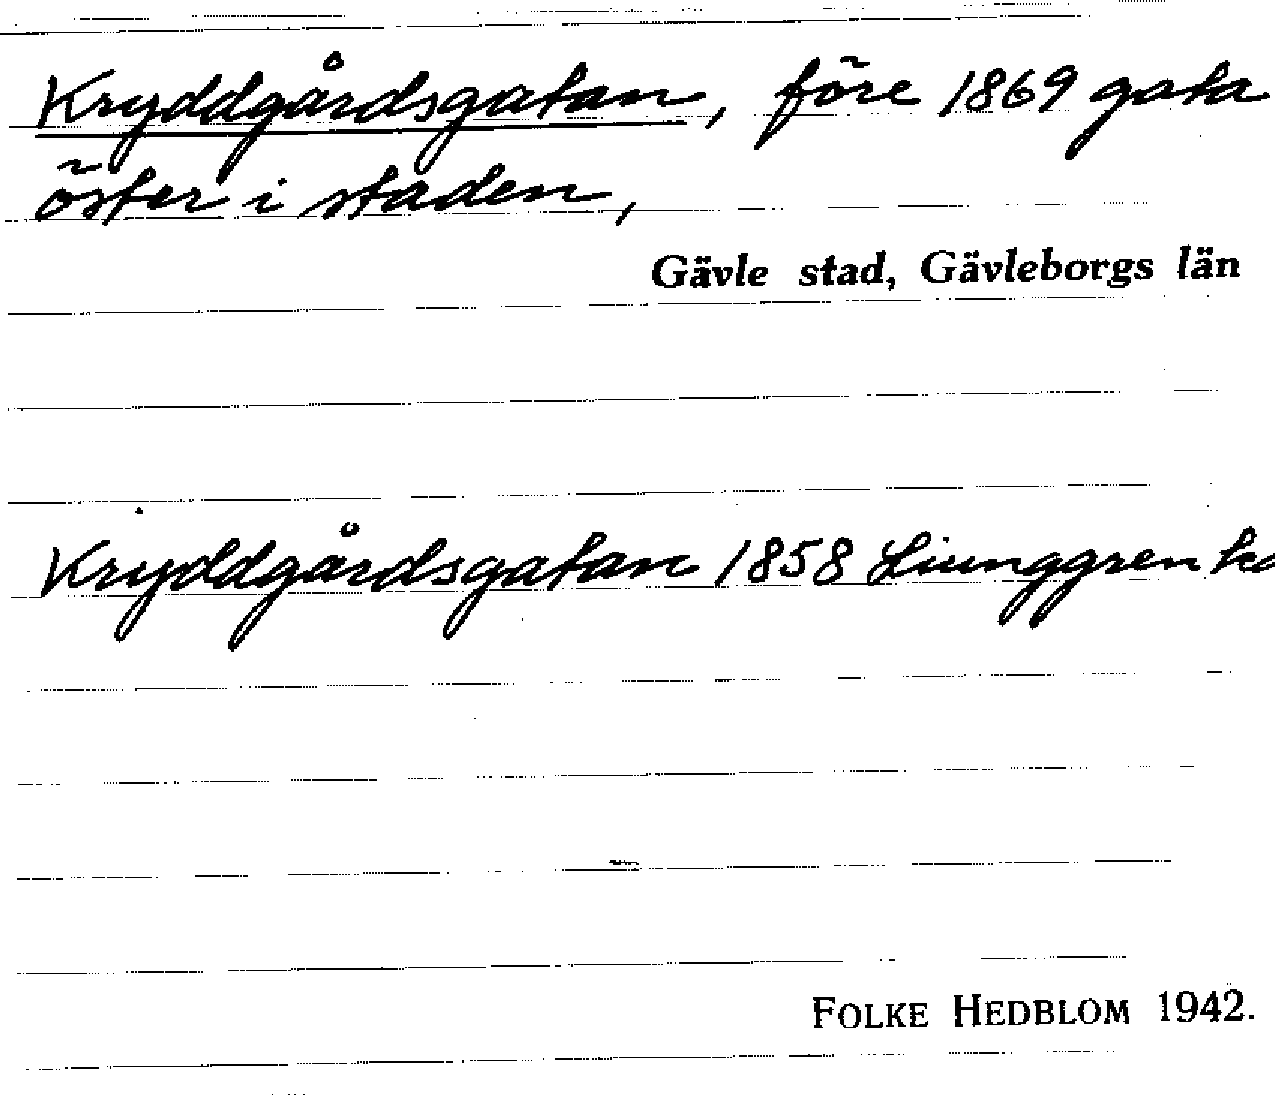 Kryddgårdsgatan, före 1869 gata
öster i staden,
Gävle stad, Gävleborgs län
Kryddgårdsgatan 1858 Liunggren ka
FOLKE HEDBLOM 1942.